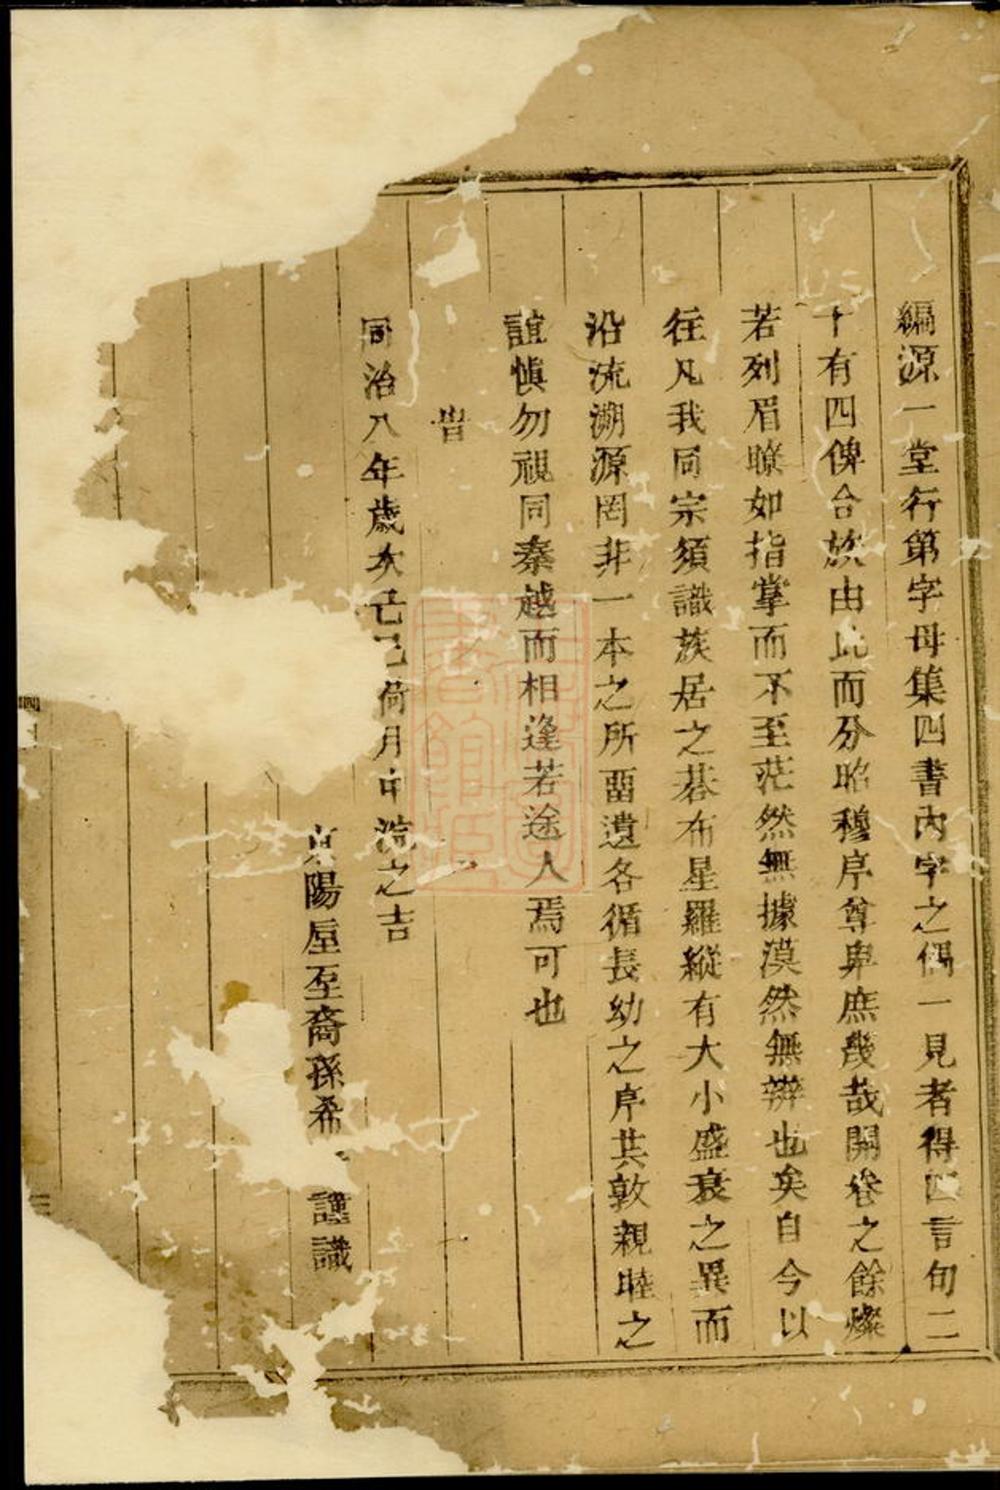 編源一堂行第字母集四書內字之偶一見者得四言句二
十有四俾合族由此而分昭穆序尊卑庶幾哉開卷之餘燦
若列眉瞭如指掌而不至茫然無據漠然無辨也矣自今以
往凡我同宗須識族居之碁布星羅縱有大小盛衰之異而
沿流溯源罔非一本之所畱遺各循長幼之序共敦親睦之
誼慎勿視同秦越而相逢若途人焉可也
旹
同治八年歲次己巳荷月中浣之吉
東陽厔至裔孫希 謹識